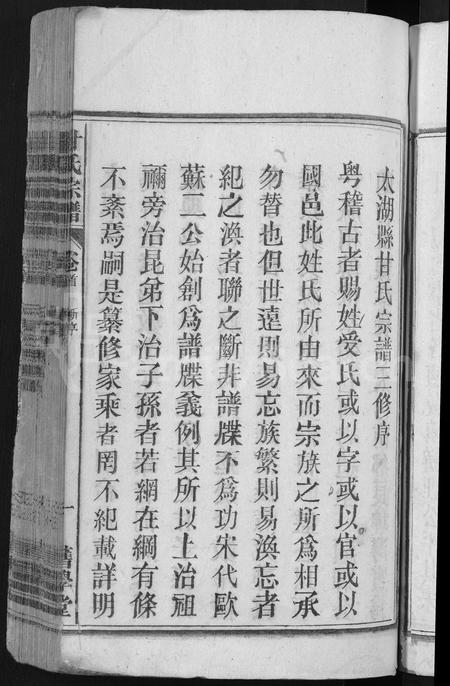 太湖縣甘氏宗譜三修序
粤稽古者賜姓受氏或以字或以官或以
國邑此姓氏所由來而宗族之所爲相承
勿替也但世遠則易忘族繁則易渙忘者
紀之渙者聯之斷非譜牒不爲功宋代歐
蘇二公始創爲譜牒義例其所以上治祖
禰旁治昆弟下治子孫者若網在綱有條
不紊焉嗣是纂修家乘者罔不紀載詳明
甘氏宗譜 卷首 新序 一 舊學堂